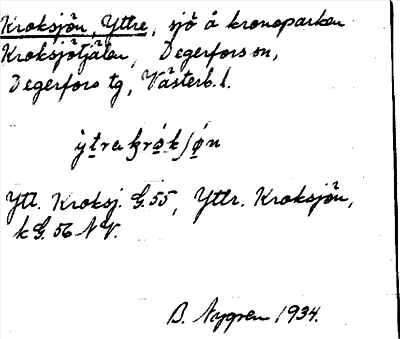 Kroksjön, Yttre, sjö å kronoparken
Kroksjötjälen, Degerfors sn,
Degerfors tg, Västerb. l.
Ytt. Kroksj. G.55, Yttr. Kroksjön,
k G. 56 NV.
B. Nygren 1934.